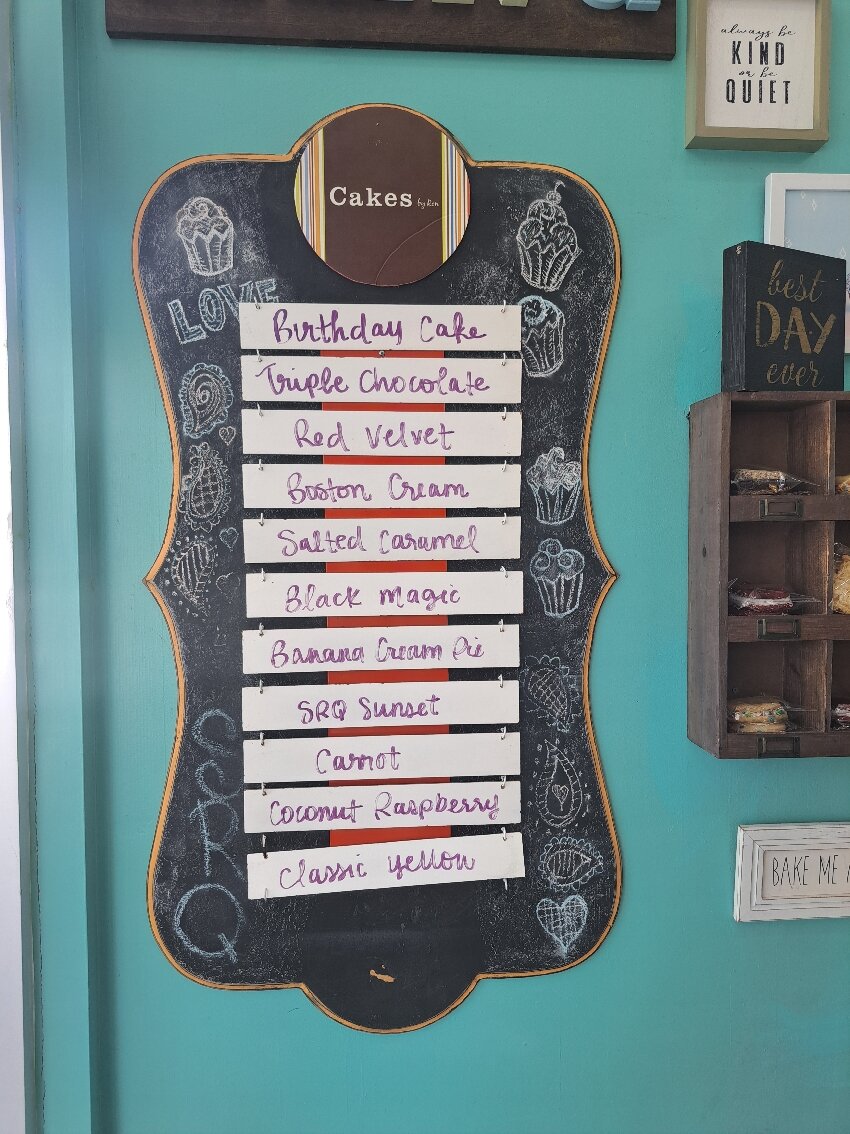 always be
KIND
or be
QUIET
Cakes by Ron
LOVE
Birthday Cake
Triple Chocolate
Red Velvet
Boston Cream
Salted Caramel
Black Magic
Banana Cream Pie
SRQ Sunset
Carrot
Coconut Raspberry
Classic Yellow
SRQ
best
DAY
ever
BAKE ME